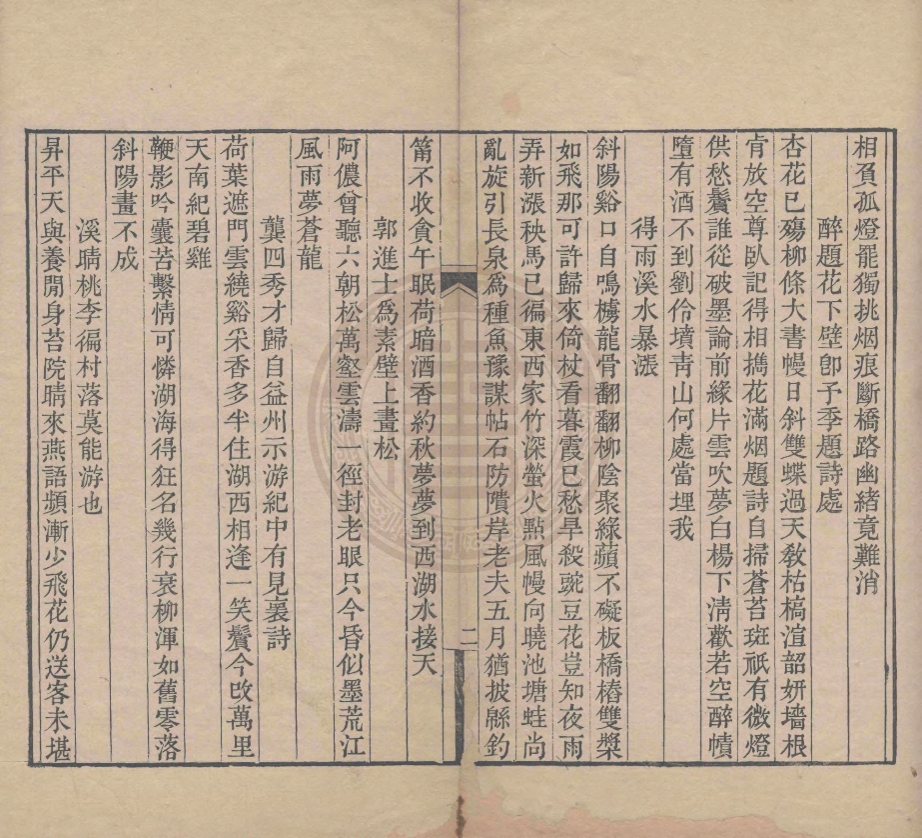 相負孤燈罷獨挑烟痕斷橋路幽緒竟難消
醉題花下壁卽予季題詩處
杏花已殤柳條大書幔日斜雙蝶過天敎枯槁渲韶妍墻根
肻放空尊臥記得相擕花滿烟題詩自掃蒼苔斑祇有微燈
供愁鬢誰從破墨論前緣片雲吹夢白楊下淸歡若空醉幘
墮有酒不到劉伶墳靑山何處當埋我
得雨溪水暴漲
斜陽谿口自鳴樐龍骨翻翻柳陰聚綠蘋不礙板橋樁雙槳
如飛那可許歸來倚杖看暮霞已愁旱殺豌豆花豈知夜雨
弄新漲秧馬已徧東西家竹深螢火點風幔向曉池塘蛙尚
亂旋引長泉爲種魚豫謀帖石防隤岸老夫五月猶披緜釣
筩不收貪午眠荷暗酒香約秋夢夢到西湖水接天
郭進士爲素壁上畫松
阿儂曾聽六朝松萬壑雲濤一徑封老眼只今昏似墨荒江
風雨夢蒼龍
龔四秀才歸自益州示游紀中有見裏詩
荷葉遮門雲繞谿采香多半住湖西相逢一笑鬢今改萬里
天南紀碧雞
鞭影吟囊苦繫情可憐湖海得狂名幾行衰柳渾如舊零落
斜陽畫不成
溪晴桃李徧村落莫能游也
昇平天與養閒身苔院晴來燕語頻漸少飛花仍送客未堪
二